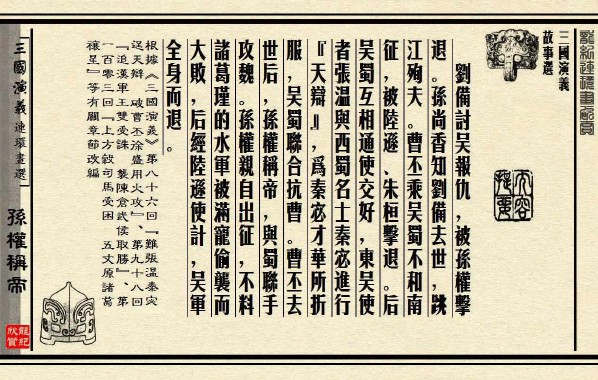 龍紀連環畫欣賞
三國演義
故事選
內容
提要
劉備討吳報仇，被孫權擊
退。孫尚香知劉備去世，跳
江殉夫。曹丕乘吳蜀不和南
征，被陸遜、朱桓擊退。后
吳蜀互相通使交好，東吳使
者張溫與西蜀名士秦宓進行
『天辯』，爲秦宓才華所折
服，吳蜀聯合抗曹。曹丕去
世后，孫權稱帝，與蜀聯手
攻魏。孫權親自出征，不料
諸葛瑾的水軍被滿寵偷襲而
大敗，后經陸遜使計，吳軍
全身而退。
根據《三國演義》第八十六回『難張溫秦宓
逞天辯 破曹丕徐盛用火攻』、第九十八回
『追漢軍王雙受誅 襲陳倉武侯取勝』、第
一百零三回『上方穀司馬受困 五丈原諸葛
禳星』等有關章節改編
三國演義連環畫選
孫權稱帝
龍紀
欣賞